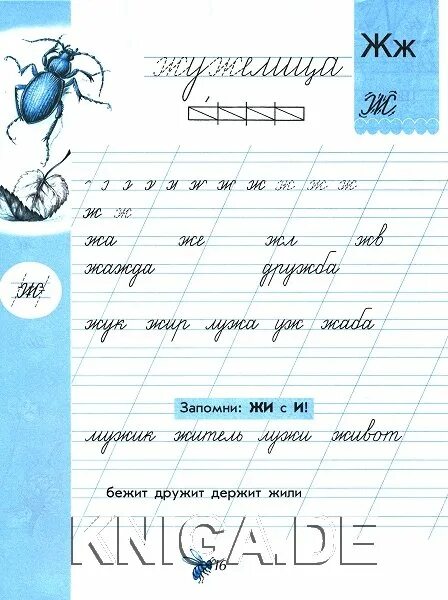 жужелица
Жж
Ж
ж ж ж ж
ж ж
жа же жл жв
жажда дружба
ж
жук жир лужа уж жаба
Запомни: ЖИ с И!
мужик житель лужи живот
бежит дружит держит жили
KNIGA.DE
16